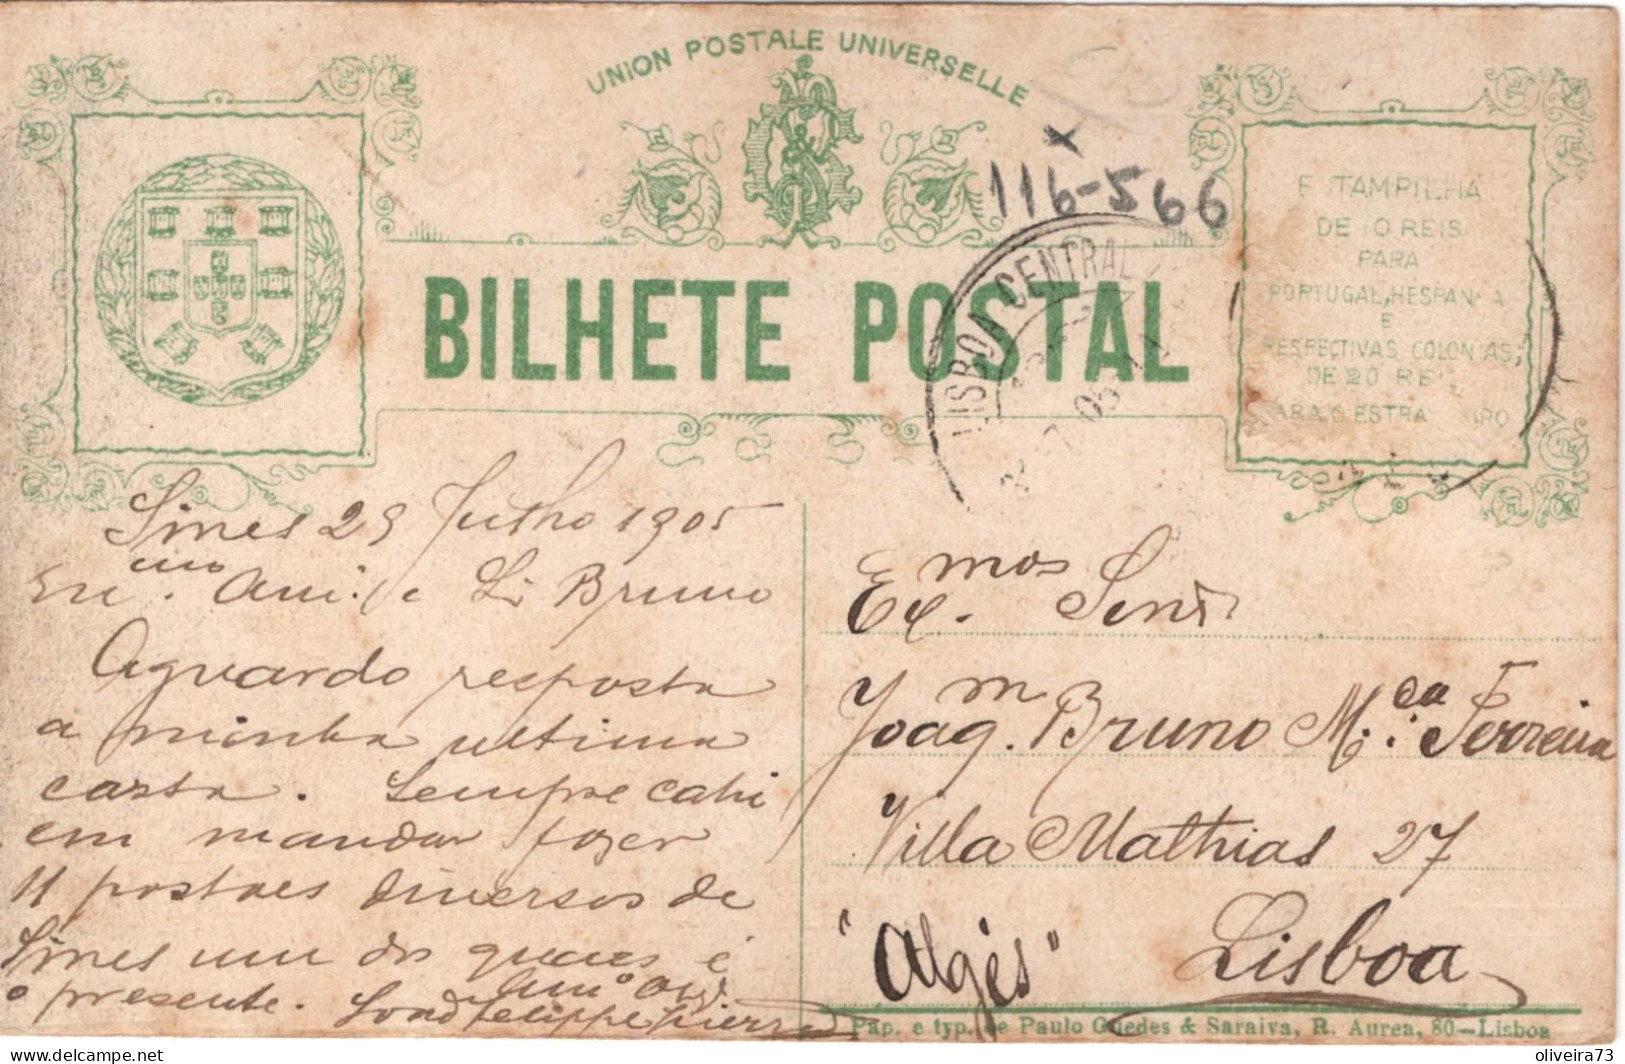 UNION POSTALE UNIVERSELLE
116-566
ESTAMPILHA
DE 10 REIS
PARA
PORTUGAL, HESPANHA
E
RESPECTIVAS COLONIAS,
DE 20 REIS
PARA O ESTRANGEIRO
BILHETE POSTAL
LISBOA CENTRAL
Sines 29 Julho 1905
Bruno
Aguardo resposta
a minha ultima
carta. Sempre cahi
em mandar fazer
11 postaes diversos de
Sines um dos quaes é
o presente.
Ex.mos Senr
Joaqm. Bruno M.ca Ferreira
Villa Mathias 27
"Algés" Lisboa
Pap. e typ. de Paulo Guedes & Saraiva, R. Aurea, 80—Lisboa
oliveira73